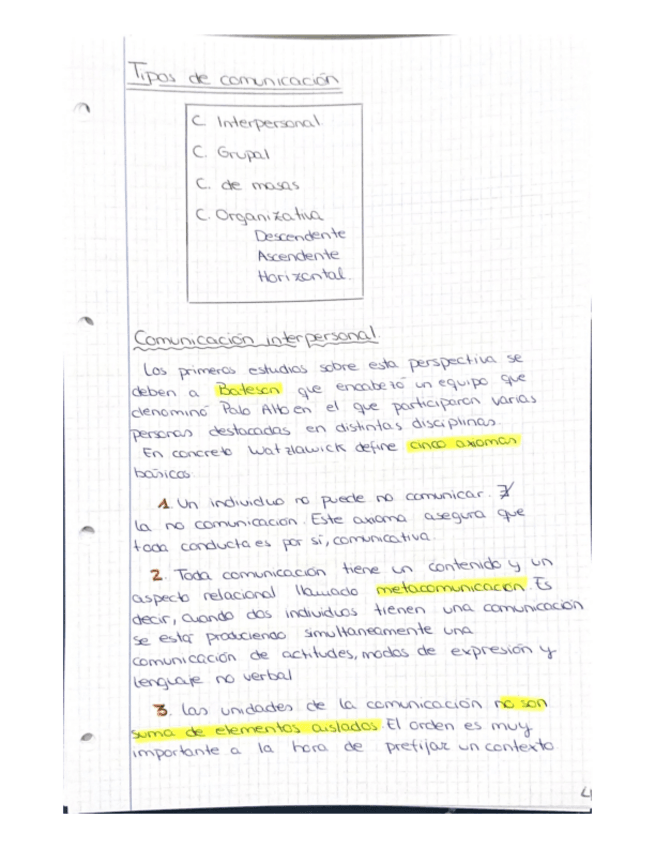 Tipos de comunicación
C. Interpersonal.
C. Grupal
C. de masas
C. Organizativa
Descendente
Ascendente
Horizontal.
Comunicación interpersonal.
Los primeros estudios sobre esta perspectiva se
deben a Bateson que encabezó un equipo que
denominó Palo Alto en el que participaron varias
personas destacadas en distintas disciplinas.
En concreto Watzlawick define cinco axiomas
básicos.
1. Un individuo no puede no comunicar. ∄
la no comunicación. Este axioma asegura que
toda conducta es por sí, comunicativa.
2. Toda comunicación tiene un contenido y un
aspecto relacional llamado metacomunicación. Es
decir, cuando dos individuos tienen una comunicación
se está produciendo simultaneamente una
comunicación de actitudes, modos de expresión y
lenguaje no verbal
3. Las unidades de la comunicación no son
suma de elementos aislados. El orden es muy
importante a la hora de prefijar un contexto
4